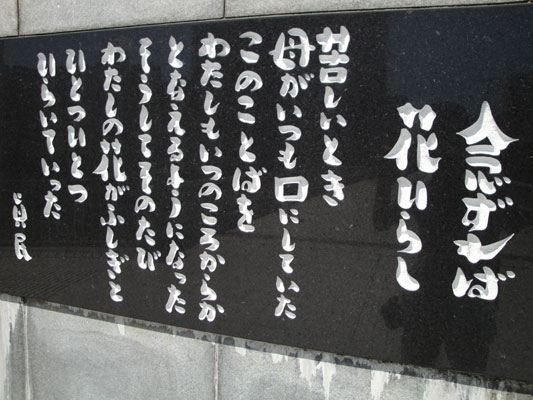 念ずれば
花ひらく
苦しいとき
母がいつも口にしていた
このことばを
わたしもいつのころからか
となえるようになった
そうしてそのたび
わたしの花がふしぎと
ひとつひとつ
ひらいていった
真民